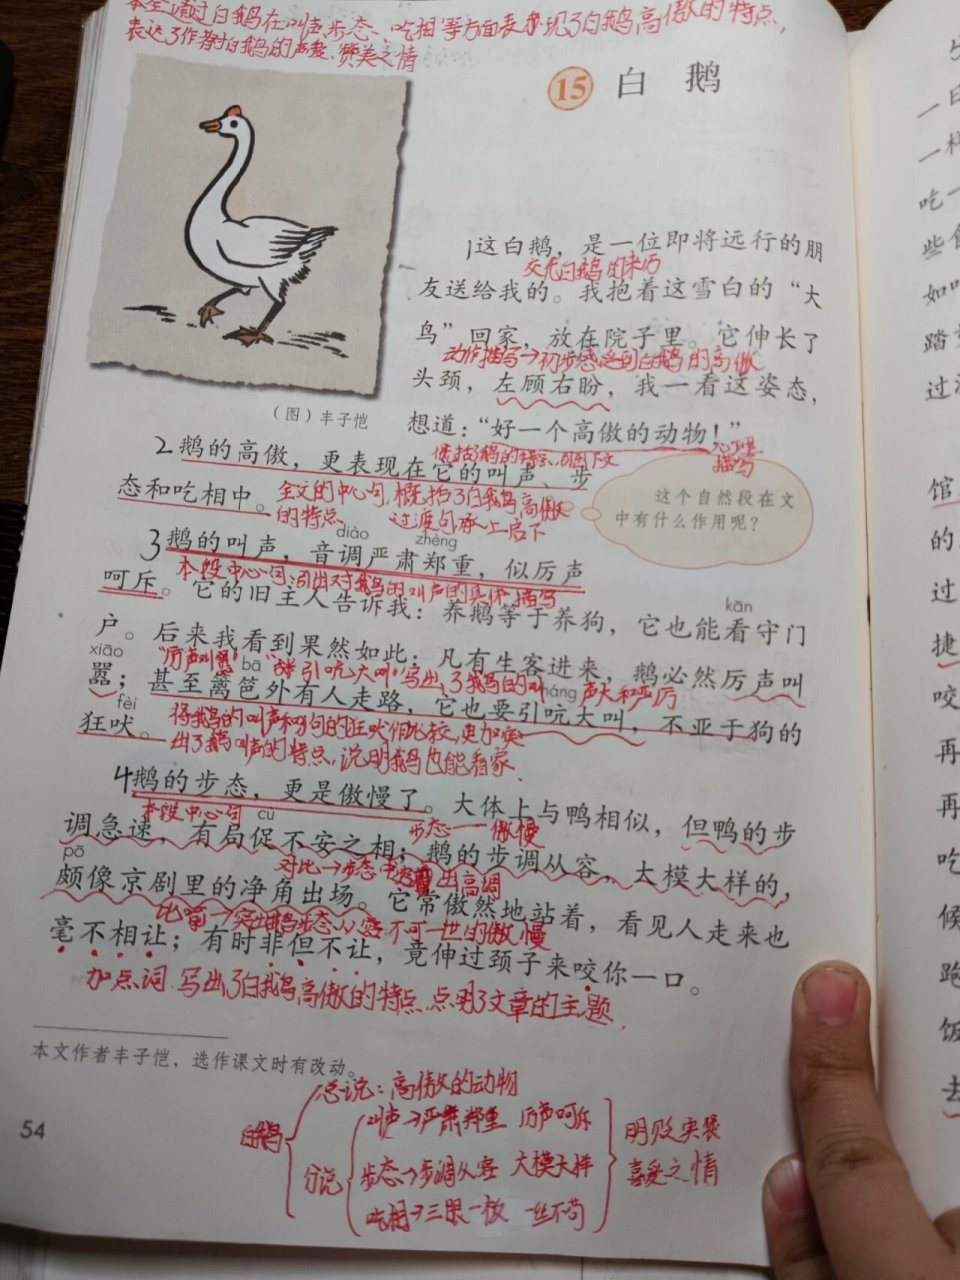 本课通过白鹅在叫声、步态、吃相等方面表现了白鹅高傲的特点,
表达了作者对白鹅的声赞、赞美之情
15 白 鹅
1这白鹅，是一位即将远行的朋
交代白鹅的来历
友送给我的。我抱着这雪白的“大
鸟”回家，放在院子里。它伸长了
动作描写→初步感受到白鹅的高傲
头颈，左顾右盼，我一看这姿态，
(图) 丰子恺
想道：“好一个高傲的动物！”
心理
描写
2鹅的高傲，更表现在它的叫声、步
态和吃相中。
全文的中心句，概括了白鹅高傲
的特点 过渡句承上启下
这个自然段在文
中有什么作用呢？
diào zhèng
3鹅的叫声，音调严肃郑重，似厉声
本段中心句，写出对鹅的叫声的具体描写
呵斥。它的旧主人告诉我：养鹅等于养狗，它也能看守门
kān
户。后来我看到果然如此：凡有生客进来，鹅必然厉声叫
xiāo bā háng
嚣；甚至篱笆外有人走路，它也要引吭大叫，不亚于狗的
fèi
狂吠。
将鹅的叫声和狗的狂吠作比较，更加突
出了鹅叫声的特点，说明鹅也能看家.
4鹅的步态，更是傲慢了。大体上与鸭相似，但鸭的步
本段中心句 cù 步态——傲慢
调急速，有局促不安之相；鹅的步调从容，大模大样的，
pō
颇像京剧里的净角出场。它常傲然地站着，看见人走来也
毫不相让；有时非但不让，竟伸过颈子来咬你一口。
加点词.写出了白鹅高傲的特点.点明了文章的主题.
本文作者丰子恺，选作课文时有改动。
54
白鹅
总说：高傲的动物
分说
叫声→严肃郑重 厉声呵斥
步态→步调从容 大模大样
吃相→三眼一板 一丝不苟
明贬实褒
喜爱之情
馆
的
过
捷
咬
再
再
吃
候
跑
饭
去